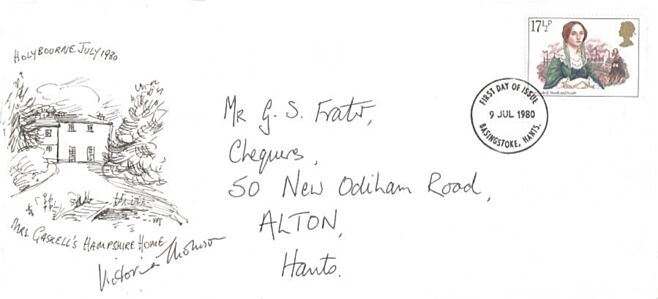 HOLYBOURNE JULY 1980
MRS GASKELL'S HAMPSHIRE HOME
Victoria Thomson
17½p
FIRST DAY OF ISSUE
9 JUL 1980
BASINGSTOKE, HANTS.
Mr G. S.
Chequers,
50 New Odiham Road,
ALTON,
Hants.